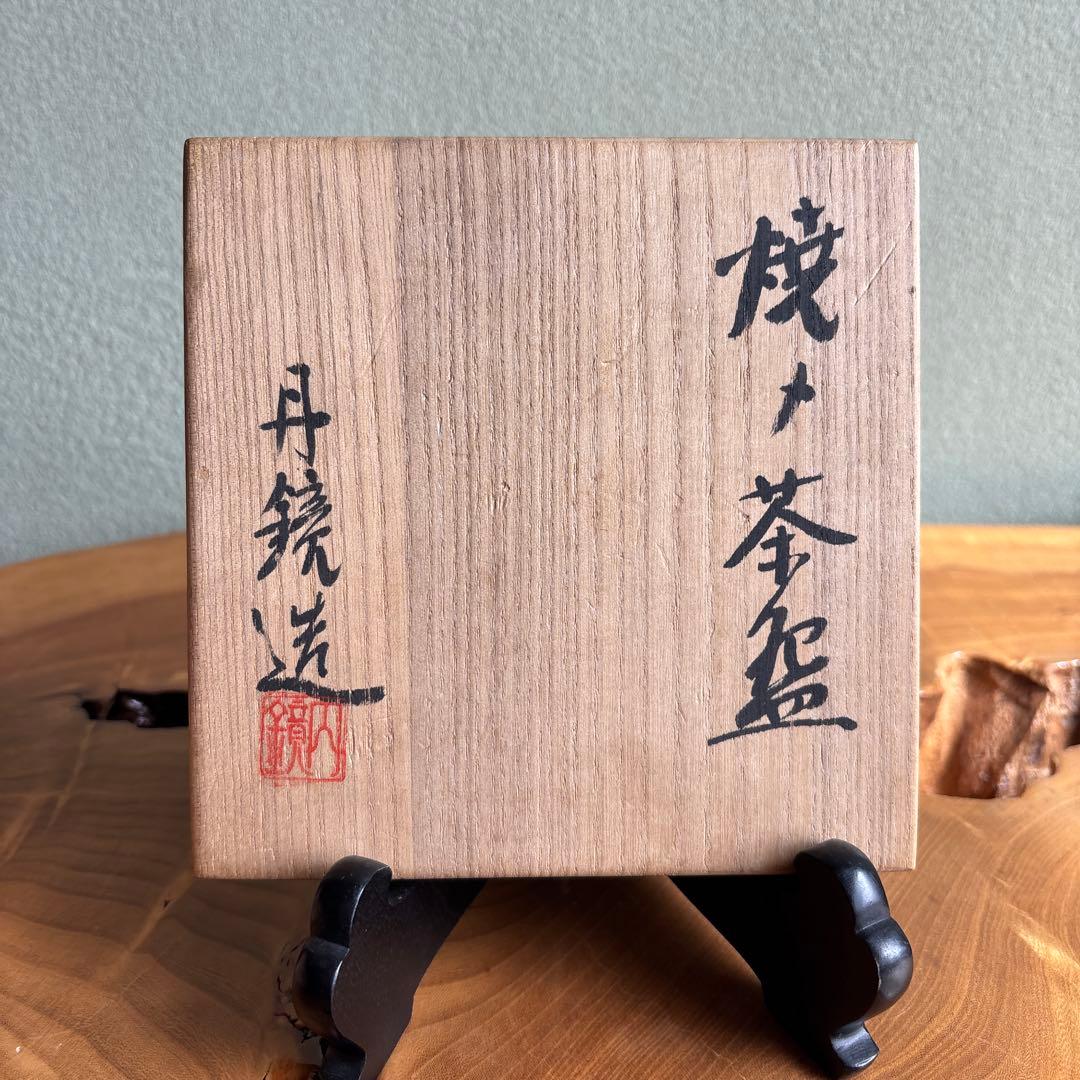 焼〆茶盌
丹鏡造
丹鏡